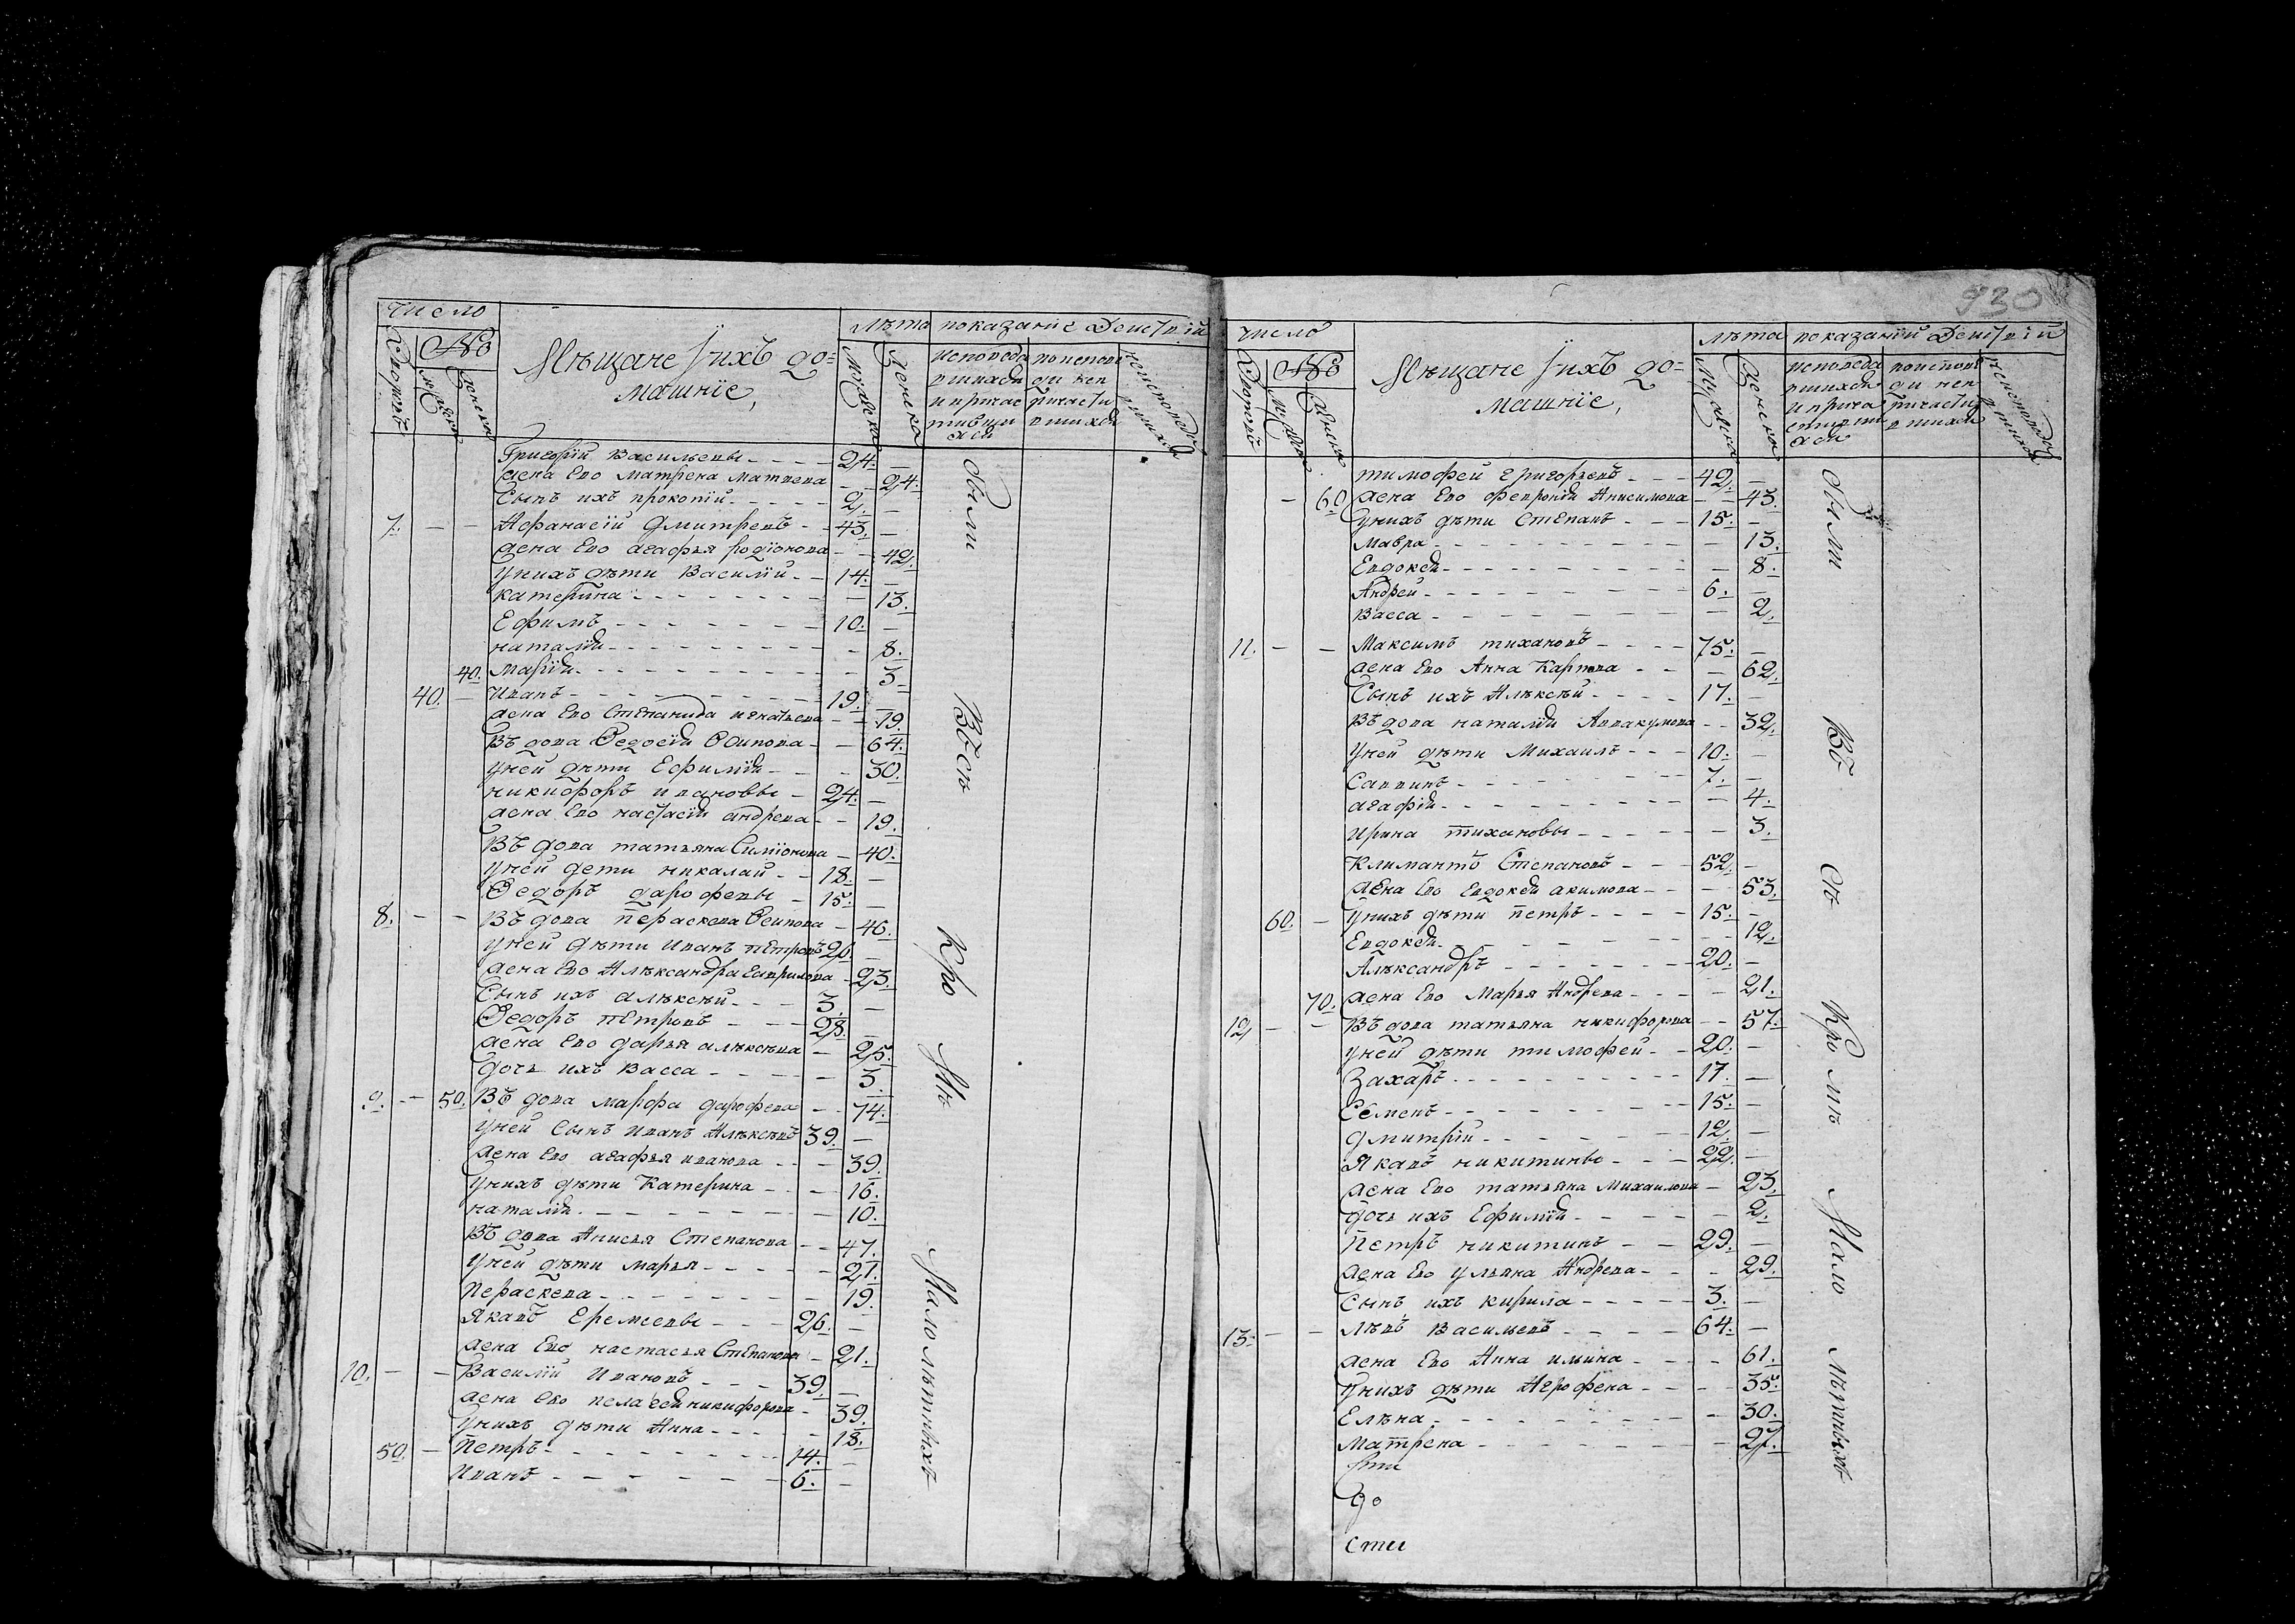 число
Дворовъ
№
мужска
женска
Мѣщане и ихъ до=
машніе,
лѣта
мужска
женска
показаніе действій
исповеда
вшихся
и причас
тивши
хся
поиспове
ди неп
ричасти
вшихся
неисповеда
вшихся
Григорій Васильевы - - - - 24. -
жена Ево матрена матвева - - 24.
Сынъ ихъ прокопій - - - - 2. -
7. - - Афанасій дмитревъ - - 43. -
жена Ево агафья родіонова - - 42.
у нихъ дѣти Василій - - 14. -
катерина - - - - - - - - 13.
Ефимъ - - - - - - - 10. -
наталія - - - - - - - - 8.
40. Марія - - - - - - - - - 3
40. - Иванъ - - - - - - - 19. -
жена Ево Степанида игнатьева - - 19.
Въдова Федосія Осипова - - 64.
у ней дѣти Ефимія - - - - 30.
никифоръ ивановы - 24. -
жена Ево настасія андрева - - 19.
Въдова татьяна Симіонова - 40.
у ней дети николай - - 18. -
Федоръ дарофевы - 15. -
8. - - Въдова пераскева Осипова - 46.
у ней дѣти Иванъ петровъ 26. -
жена Ево Александра Гаврилова - 23.
Сынъ ихъ алѣксѣй - - - 3. -
Федоръ петровъ - - - 28. -
жена Ево дарья алѣксѣева - 25.
дочь ихъ Васса - - - - - 3.
9. - - 50. Въдова марфа дарофева - - 74.
у ней Сынъ Иванъ Алѣксѣвъ 39. -
жена Ево агафья иванова - - - 39.
у нихъ дѣти Катерина - - - 16.
наталія - - - - - - - - 10.
Въдова Анисья Степанова - - 47.
у ней дѣти марья - - - - - 21.
Пераскева - - - - - - - - 19.
Якавъ Еремеевы - - - 26. -
жена Ево настасья Степанова - 21.
10. - - Василій Ивановъ - - - 39. -
жена Ево пелагея никифорова - 39.
у нихъ дѣти Анна - - - - - 18.
50. - Петръ - - - - - - - - 14. -
Иванъ - - - - - - - 6. -
были
Въсѣ
Кро
Мѣ
Малолѣтныхъ
930
число
Дворовъ
№
мужска
женска
Мѣщане и ихъ до=
машніе,
лѣта
мужска
женска
показаніи действій
исповеда
вшихся
и прича
стивши
хся
поиспове
ди неп
ричасти
вшихся
неисповеда
вшихся
тимофей григорьевъ - - - 42. -
- 60 жена Ево феврония Анисимова - - 43.
у нихъ дѣти Степанъ - - - 15. -
Мавра - - - - - - - - - - 13.
Евдокея - - - - - - - - - - 8.
Андрей - - - - - - - - - 6. -
Васса - - - - - - - - - 2.
11. - - Максимъ тихановъ - - - - 75. -
жена Ево Анна Карпова - - - 62.
Сынъ ихъ Алѣксѣй - - - - 17. -
Въдова наталия Аввакумова - - 32.
у ней дѣти Михаилъ - - - 10. -
Саввинъ - - - - - - - - 7. -
агафія - - - - - - - - - 4.
Ирина тихановы - - - - - - 3.
Климантъ Степановъ - - - 52. -
жена Ево Евдокея акимова - - - 53.
60. - у нихъ дѣти петръ - - - - 15. -
Евдокея - - - - - - - - 12.
Алѣксандръ - - - - - - - 20. -
70. жена Ево Марья Андрева - - - - 21.
12 - - Въдова татьяна никифорова - - 57.
у ней дѣти тимофей - - 20. -
Захаръ - - - - - - - - - 17. -
Семенъ - - - - - - - - - 15. -
дмитрій - - - - - - - - 12. -
Якавъ никитины - - - - 22. -
жена Ево татьяна Михаилова - 23.
дочь ихъ Ефимія - - - - - 2.
Петръ никитинъ - - - 29. -
жена Ево ульяна Андрева - - - 29.
Сынъ ихъ кирила - - - - - 3. -
13. - - Лѣвъ Васильевъ - - - - 64. -
жена Ево Анна ильина - - - - 61.
у нихъ дѣти Агрофена - - - - 35.
Елѣна - - - - - - - - - - 30.
Матрена - - - - - - - - - 27.
до
сти
были
Въ
сѣ
Кро
мѣ
Мало
лѣтныхъ